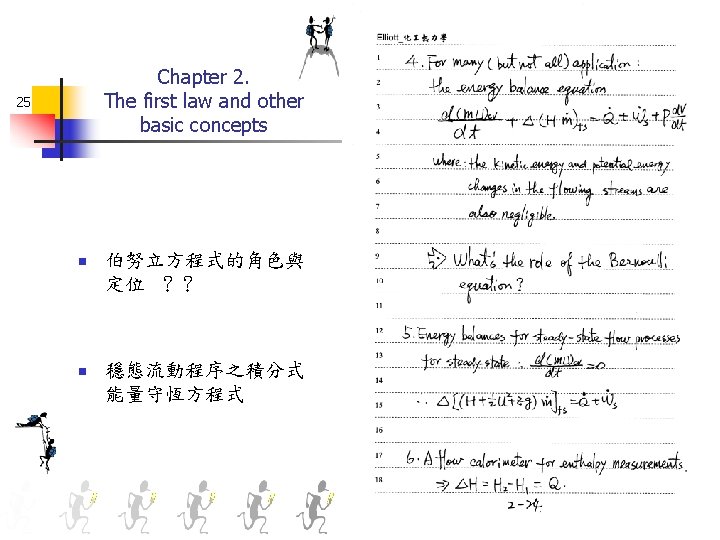 25
Chapter 2.
The first law and other
basic concepts
伯努立方程式的角色與
定位 ？？
穩態流動程序之積分式
能量守恆方程式
Elliott_化工熱力學
1 4. For many (but not all) application :
2 the energy balance equation
3 d(mU)cv/dt + Δ(Hṁ)fs = Q̇ + Ẇs + P dV/dt
4
5 where the kinetic energy and potential energy
6 changes in the flowing streams are
7 also negligible.
8
9 ⇒ What's the role of the Bernoulli
10 equation?
11
12 5. Energy balances for steady-state flow processes
13 for steady state : d(mU)cv/dt = 0
14
15 ∴ Δ[(H+½U²+zg)ṁ]fs = Q̇ + Ẇs
16
17 6. A flow calorimeter for enthalpy measurements.
18 ⇒ ΔH = H₂ - H₁ = Q.
2-24